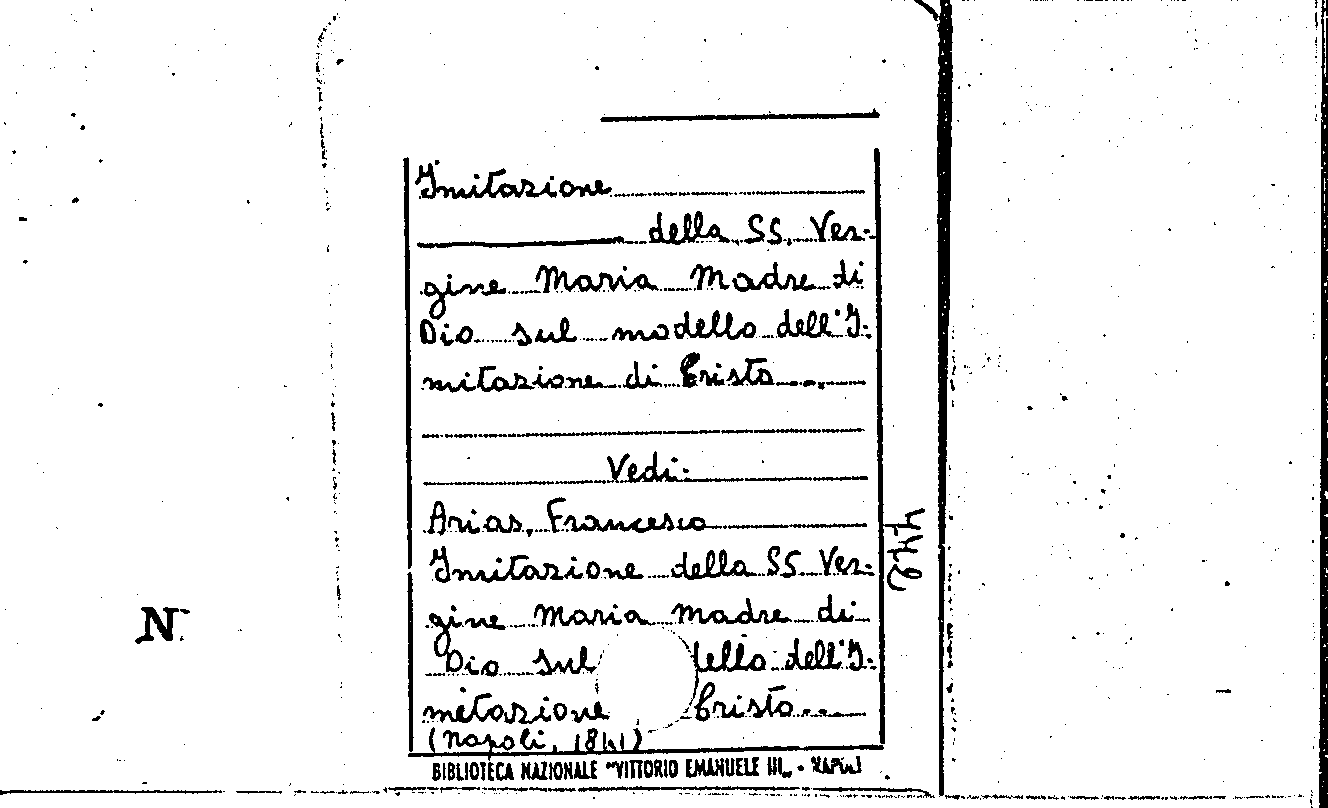 Imitazione
della SS. Ver-
gine Maria Madre di
Dio sul modello dell'I-
mitazione di Cristo...
Vedi:
Arias, Francesco
Imitazione della SS Ver-
gine Maria Madre di
Dio sul dello dell'I-
mitazione Cristo...
(Napoli, 1841)
BIBLIOTECA NAZIONALE "VITTORIO EMANUELE III" - NAPOLI
N